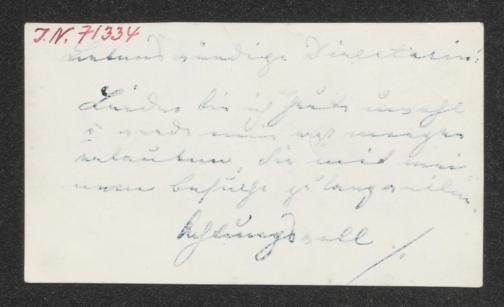 I.N. 71334
Liebenswürdige Directorin!
Leider bin ich heute unwohl
u werde mir erst morgen
erlauben, Sie mit mei
nem Besuche zu langweilen.
Achtungsvoll